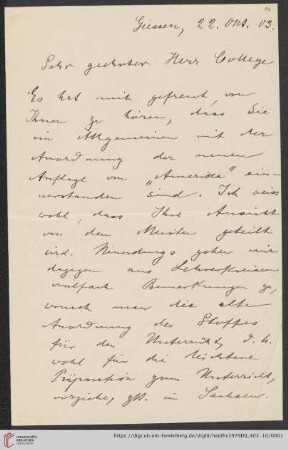 Giessen, 22. Okt. 03.
Sehr geehrter Herr College
Es hat mich gefreut, von
Ihnen zu hören, dass Sie
im Allgemeinen mit der
Anordnung der neuen
Auflage von „Amerika" ein-
verstanden sind. Ich weiss
wohl, dass Ihre Ansicht
von den Meisten geteilt
wird. Neuerdings gehen mir
dagegen aus Lehrerkreisen
vielfach Bemerkungen zu,
wonach man die alte
Anordnung des Stoffes
für den Unterricht, d. h.
wohl für die leichtere
Präparation zum Unterricht,
vorziehe, zB. in Sachsen.
https://digi.ub.uni-heidelberg.de/diglit/heidhs3929DII,403-10/0001